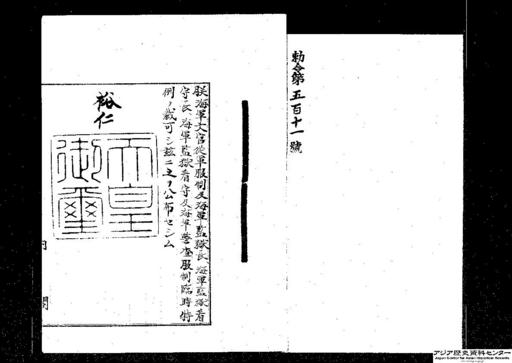 勅令第五百十一號
朕海軍文官從軍服制及海軍監獄長、海軍監獄看
守長、海軍監獄看守及海軍警査服制臨時特
例ノ裁可シ茲ニ之ヲ公布セシム
裕仁
天皇
御璽
内閣
アジア歴史資料センター
Japan Center for Asian Historical Records